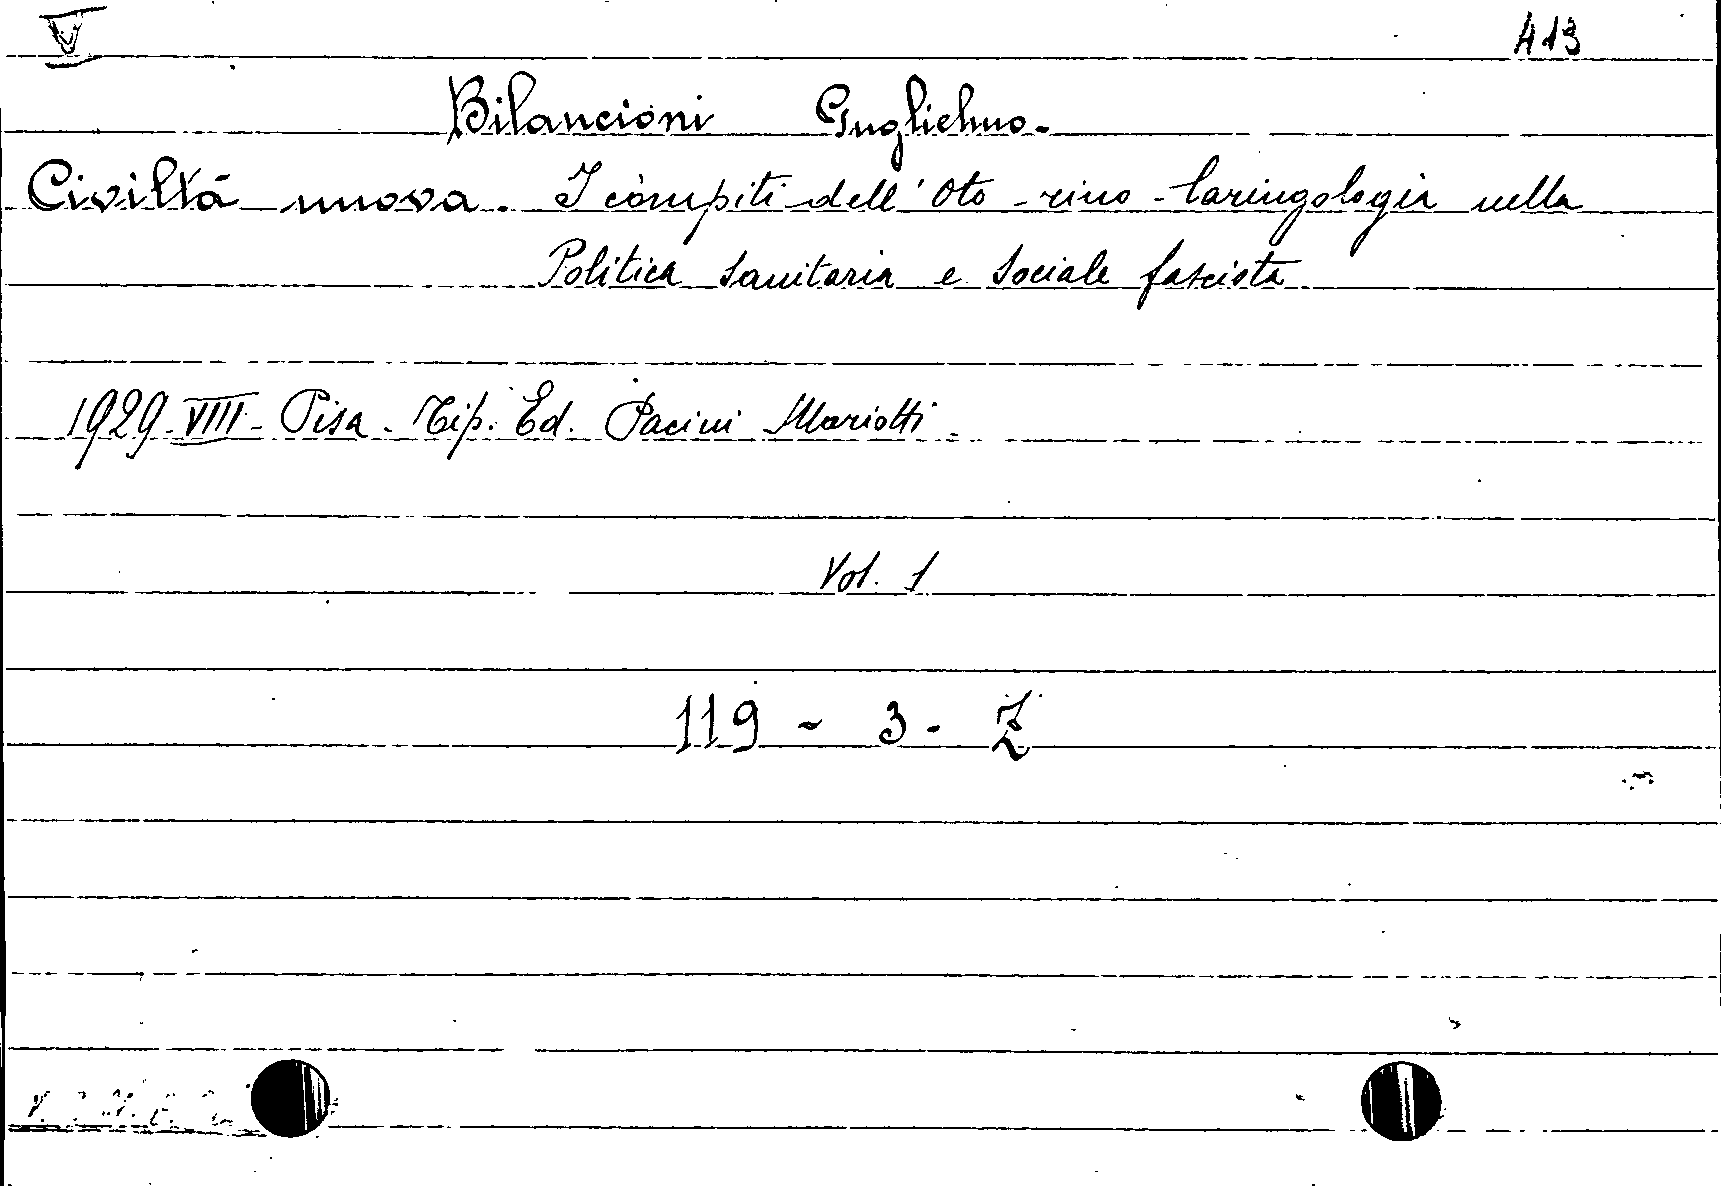 V 413
Bilancioni Guglielmo.
Civiltà nuova. I compiti dell'Oto-rino-laringologia nella
Politica sanitaria e sociale fascista
1929-VIII- Pisa - Tip. Ed. Pacini Mariotti.
Vol. 1
119 - 3 - Z